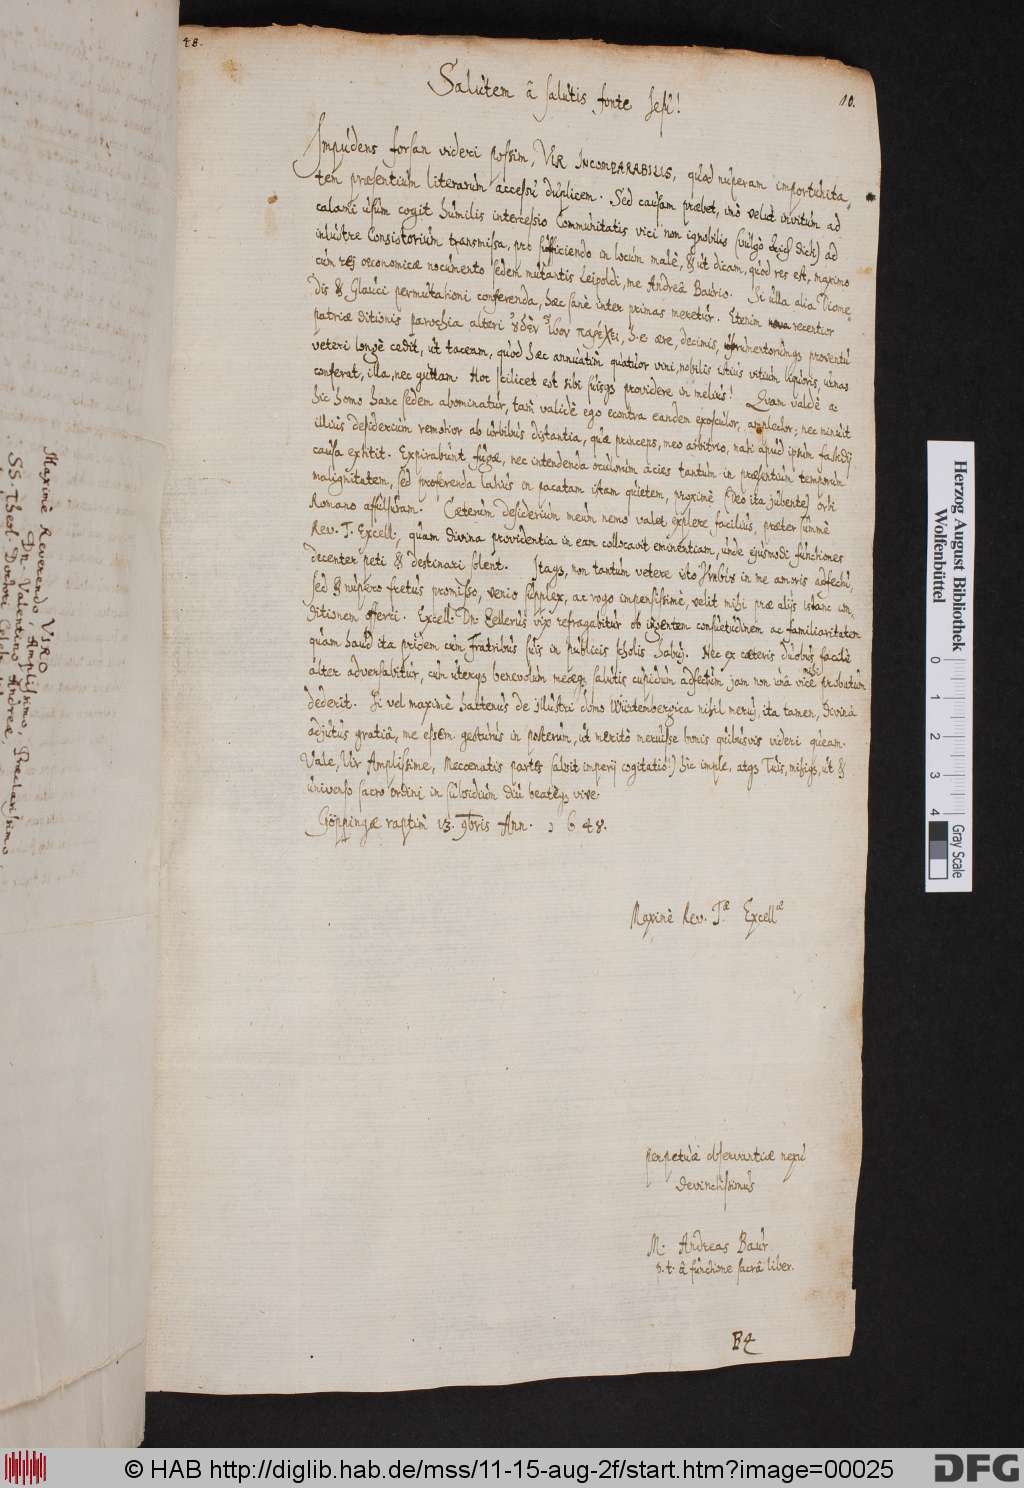 48.
10.
Salutem â salutis fonte Jesu!
Impudens forsan videri possim, VIR INCOMPARABILIS, quod nuperam importunita-
tem præsentium literarum accessu duplicem. Sed causam præbet, imò velut invitum ad
calami usum cogit humilis intercessio Communitatis vici non ignobilis (vulgò dick) ad
inlustre Consistorium transmissa, pro sufficiendo in locum malè, & ut dicam, quod res est, maximo
cum rei œconomicæ nocumento sedem mutantis Leipoldi, me Andreâ Baurio. Si ulla alia Diome-
dis & Glauci permutationi conferenda, hæc sanè inter primas meretur. Etenim recentior
patriæ ditionis parochia alteri h. e. ære, decimis, proventu
veteri longè cedit, ut taceam, quod hæc annuatim quatuor vini, nobilis istius vitium liquoris, urnas
conferat, illa, nec guttam. Hoc scilicet est sibi suisque providere in melius! Quam valdè a-
hic homo hanc sedem abominatur, tam validè ego econtra eandem exosculor, amplector; nec minuit
illius desiderium remotior ab urbibus distantia, quæ princeps, meo arbitrio, apud ipsum fastidij
causa extitit. Expirabunt fugæ, nec intendenda oculorum acies tantum in præsentium temporum
malignitatem, sed proferenda latius in pacatam istam quietem, proximè (Deo ita jubente) orbi
Romano affulsuram. Cæterum desiderium meum nemo valet explere facilius, præter summè
Rev. T. Excell., quam divina providentia in eam collocavit eminentiam, unde ejusmodi functiones
decenter peti & destinari solent. Itaque, non tantum vetere isto in me amoris adfectu,
sed & nupero fretus promisso, venio supplex, ac rogo impensissimè, velit mihi præ alijs istanc con-
ditionem offerri. Excell. Dn. Zellerus vix refragabitur ob consuetudinem ac familiaritatem
quam haud ita pridem cum Fratribus suis in publicis scholis habuj. Nec ex cæteris duobus facilè
alter adversabitur, cum uterque benevolum meæque salutis cupidum adfectum jam non unâ vice mihi probatum
dederit. Si vel maximè hactenus de illustri domo Würtenbergica nihil meruj, ita tamen, divinâ
adjutus gratiâ, me gesturus in posterum, ut meritò meruisse bonis quibusvis videri queam.
Vale, Vir Amplissime, Mecoenatis partes (absit imperij cogitatio!) hic imple, atque Tuis, mihique, ut &
universo sacro ordini in subsidium diu beatèque vive.
Göppingæ raptim 13. 9bris Ann. 1648.
Maximè Rev. Tæ Excellæ
perpetuæ observantiæ nexu
devinctissimus
M. Andreas Baur
p. t. â functione sacrâ liber.
Maximè Reverendo VIRO
Dn. Valentino Andreæ,
Amplissimo, Præclarissimo
SS. Theol. Doctori
Herzog August Bibliothek
Wolfenbüttel
0 1 2 3 4
Gray Scale
© HAB http://diglib.hab.de/mss/11-15-aug-2f/start.htm?image=00025
DFG